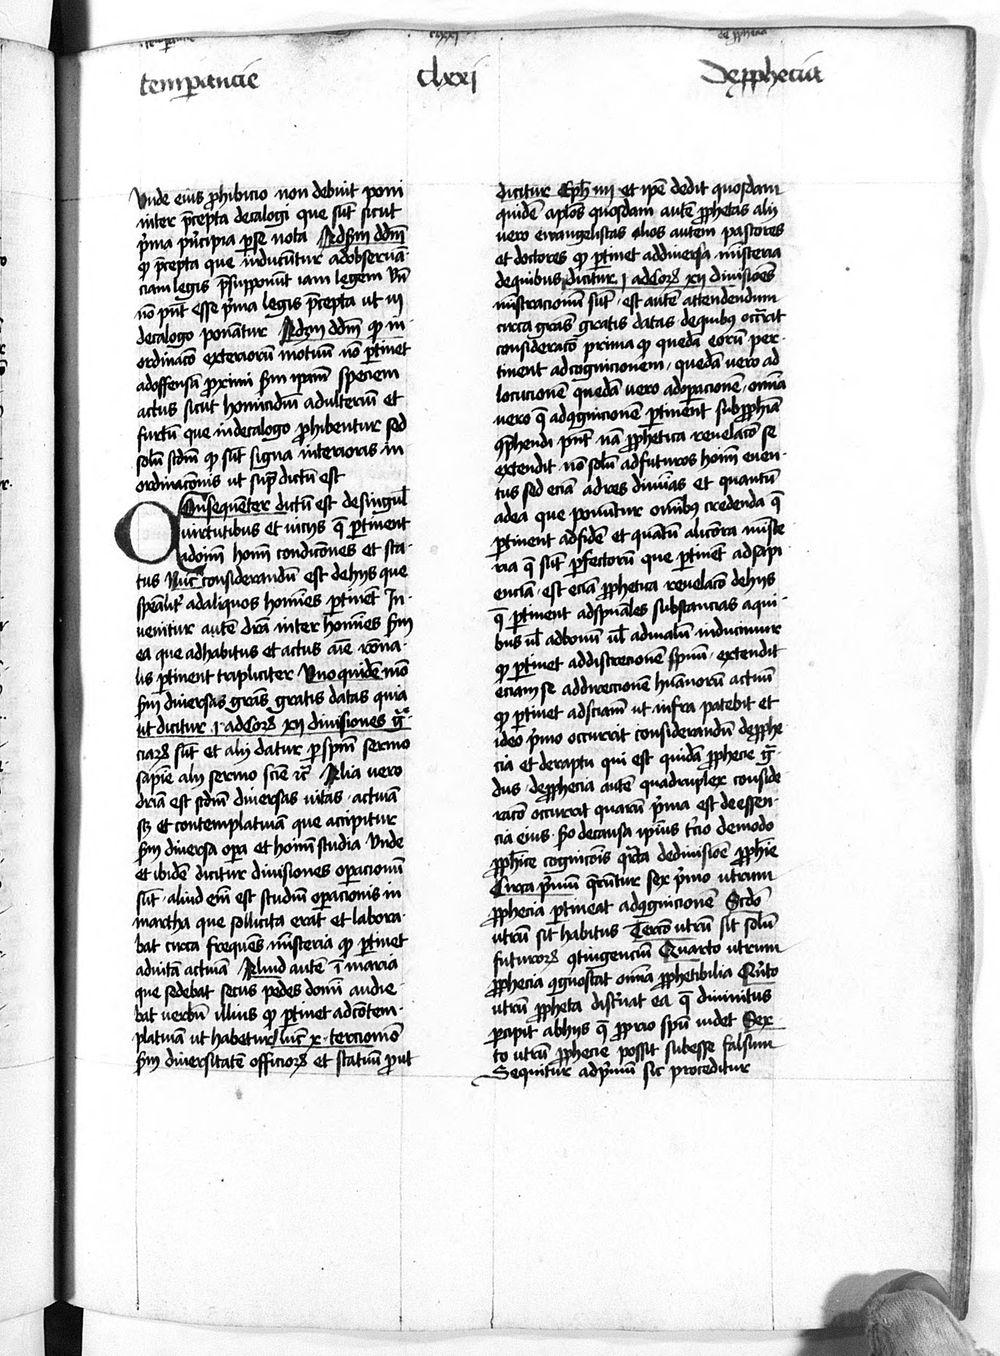 temperancie clxxi De prophecia
Unde eius prohibicio non debuit poni
inter precepta decalogi que sunt sicut
prima principia per se nota Ad secundum dicendum
quod precepta que inducuntur ad observan
ciam legis presupponunt iam legem Unde
non possunt esse prima legis precepta ut in
decalogo ponantur Ad tercium dicendum quod in
ordinacio exteriorum motuum non pertinet
ad offensam proximi secundum ipsam speciem
actus sicut homicidium adulterium et
furtum que in decalogo prohibentur sed
solum secundum quod sunt signa interioris in
ordinacionis ut supra dictum est
Consequenter dictum est de singulis
virtutibus et viciis que pertinent
ad omnium hominum condiciones et sta
tus Nunc considerandum est de hiis que
specialiter ad aliquos homines pertinent In
venitur autem differencia inter homines secundum
ea que ad habitus et actus anime raciona
lis pertinent tripliciter Uno quidem modo
secundum diversas gracias gratis datas quia
ut dicitur i ad Cor xii divisiones gra
ciarum sunt et alii datur per spiritum sermo
sapiencie alii sermo sciencie etc Alia vero
differencia est secundum diversas vitas activam
scilicet et contemplativam que accipitur
secundum diversa opera et hominum studia Unde
et ibidem dicitur divisiones operacionum
sunt aliud enim est studium operacionis in
martha que sollicita erat et labora
bat circa frequens ministerium quod pertinet
ad vitam activam Aliud autem in maria
que sedebat secus pedes domini audie
bat verbum illius quod pertinet ad contem
plativam ut habetur luc x tercio modo
secundum diversitatem officiorum et statuum prout
dicitur Eph iiii et ipse dedit quosdam
quidem apostolos quosdam autem prophetas alios
vero ewangelistas alios autem pastores
et doctores quod pertinet ad diversa ministeria
de quibus dicitur i ad Cor xii divisiones
ministracionum sunt est autem attendendum
circa gracias gratis datas de quibus occurrit
consideracio prima quod quedam eorum per
tinent ad cognicionem quedam vero ad
locucionem quedam vero ad operacionem omnia
vero que ad cognicionem pertinent sub prophecia
comprehendi possunt nam prophetica revelacio se
extendit non solum ad futuros hominum even
tus sed eciam ad res divinas et quantum
ad ea que ponuntur omnibus credenda que
pertinent ad fidem et quantum ad alciora miste
ria que sunt perfectorum que pertinent ad sapi
enciam est eciam prophetica revelacio de hiis
que pertinent ad spirituales substancias a qui
bus vel ad bonum vel ad malum inducimur
quod pertinet ad discrecionem spirituum extendit
eciam se ad direccionem humanorum actuum
quod pertinet ad scienciam ut infra patebit et
ideo primo occurrit considerandum de prophe
cia et de raptu qui est quidam prophecie gra
dus de prophecia autem quadruplex conside
racio occurrit quarum prima est de essen
cia eius secundo de causa ipsius tercio de modo
prophetice cognicionis quarta de divisione prophecie
Circa primum queruntur sex primo utrum
prophecia pertineat ad cognicionem Secundo
utrum sit habitus Tercio utrum sit solum
futurorum contingencium Quarto utrum
propheta cognoscat omnia prophetibilia Quinto
utrum propheta discernat ea que divinitus
percipit ab hiis que proprio spiritu videt Sex
to utrum prophecie possit subesse falsum
Sequitur ad primum sic proceditur